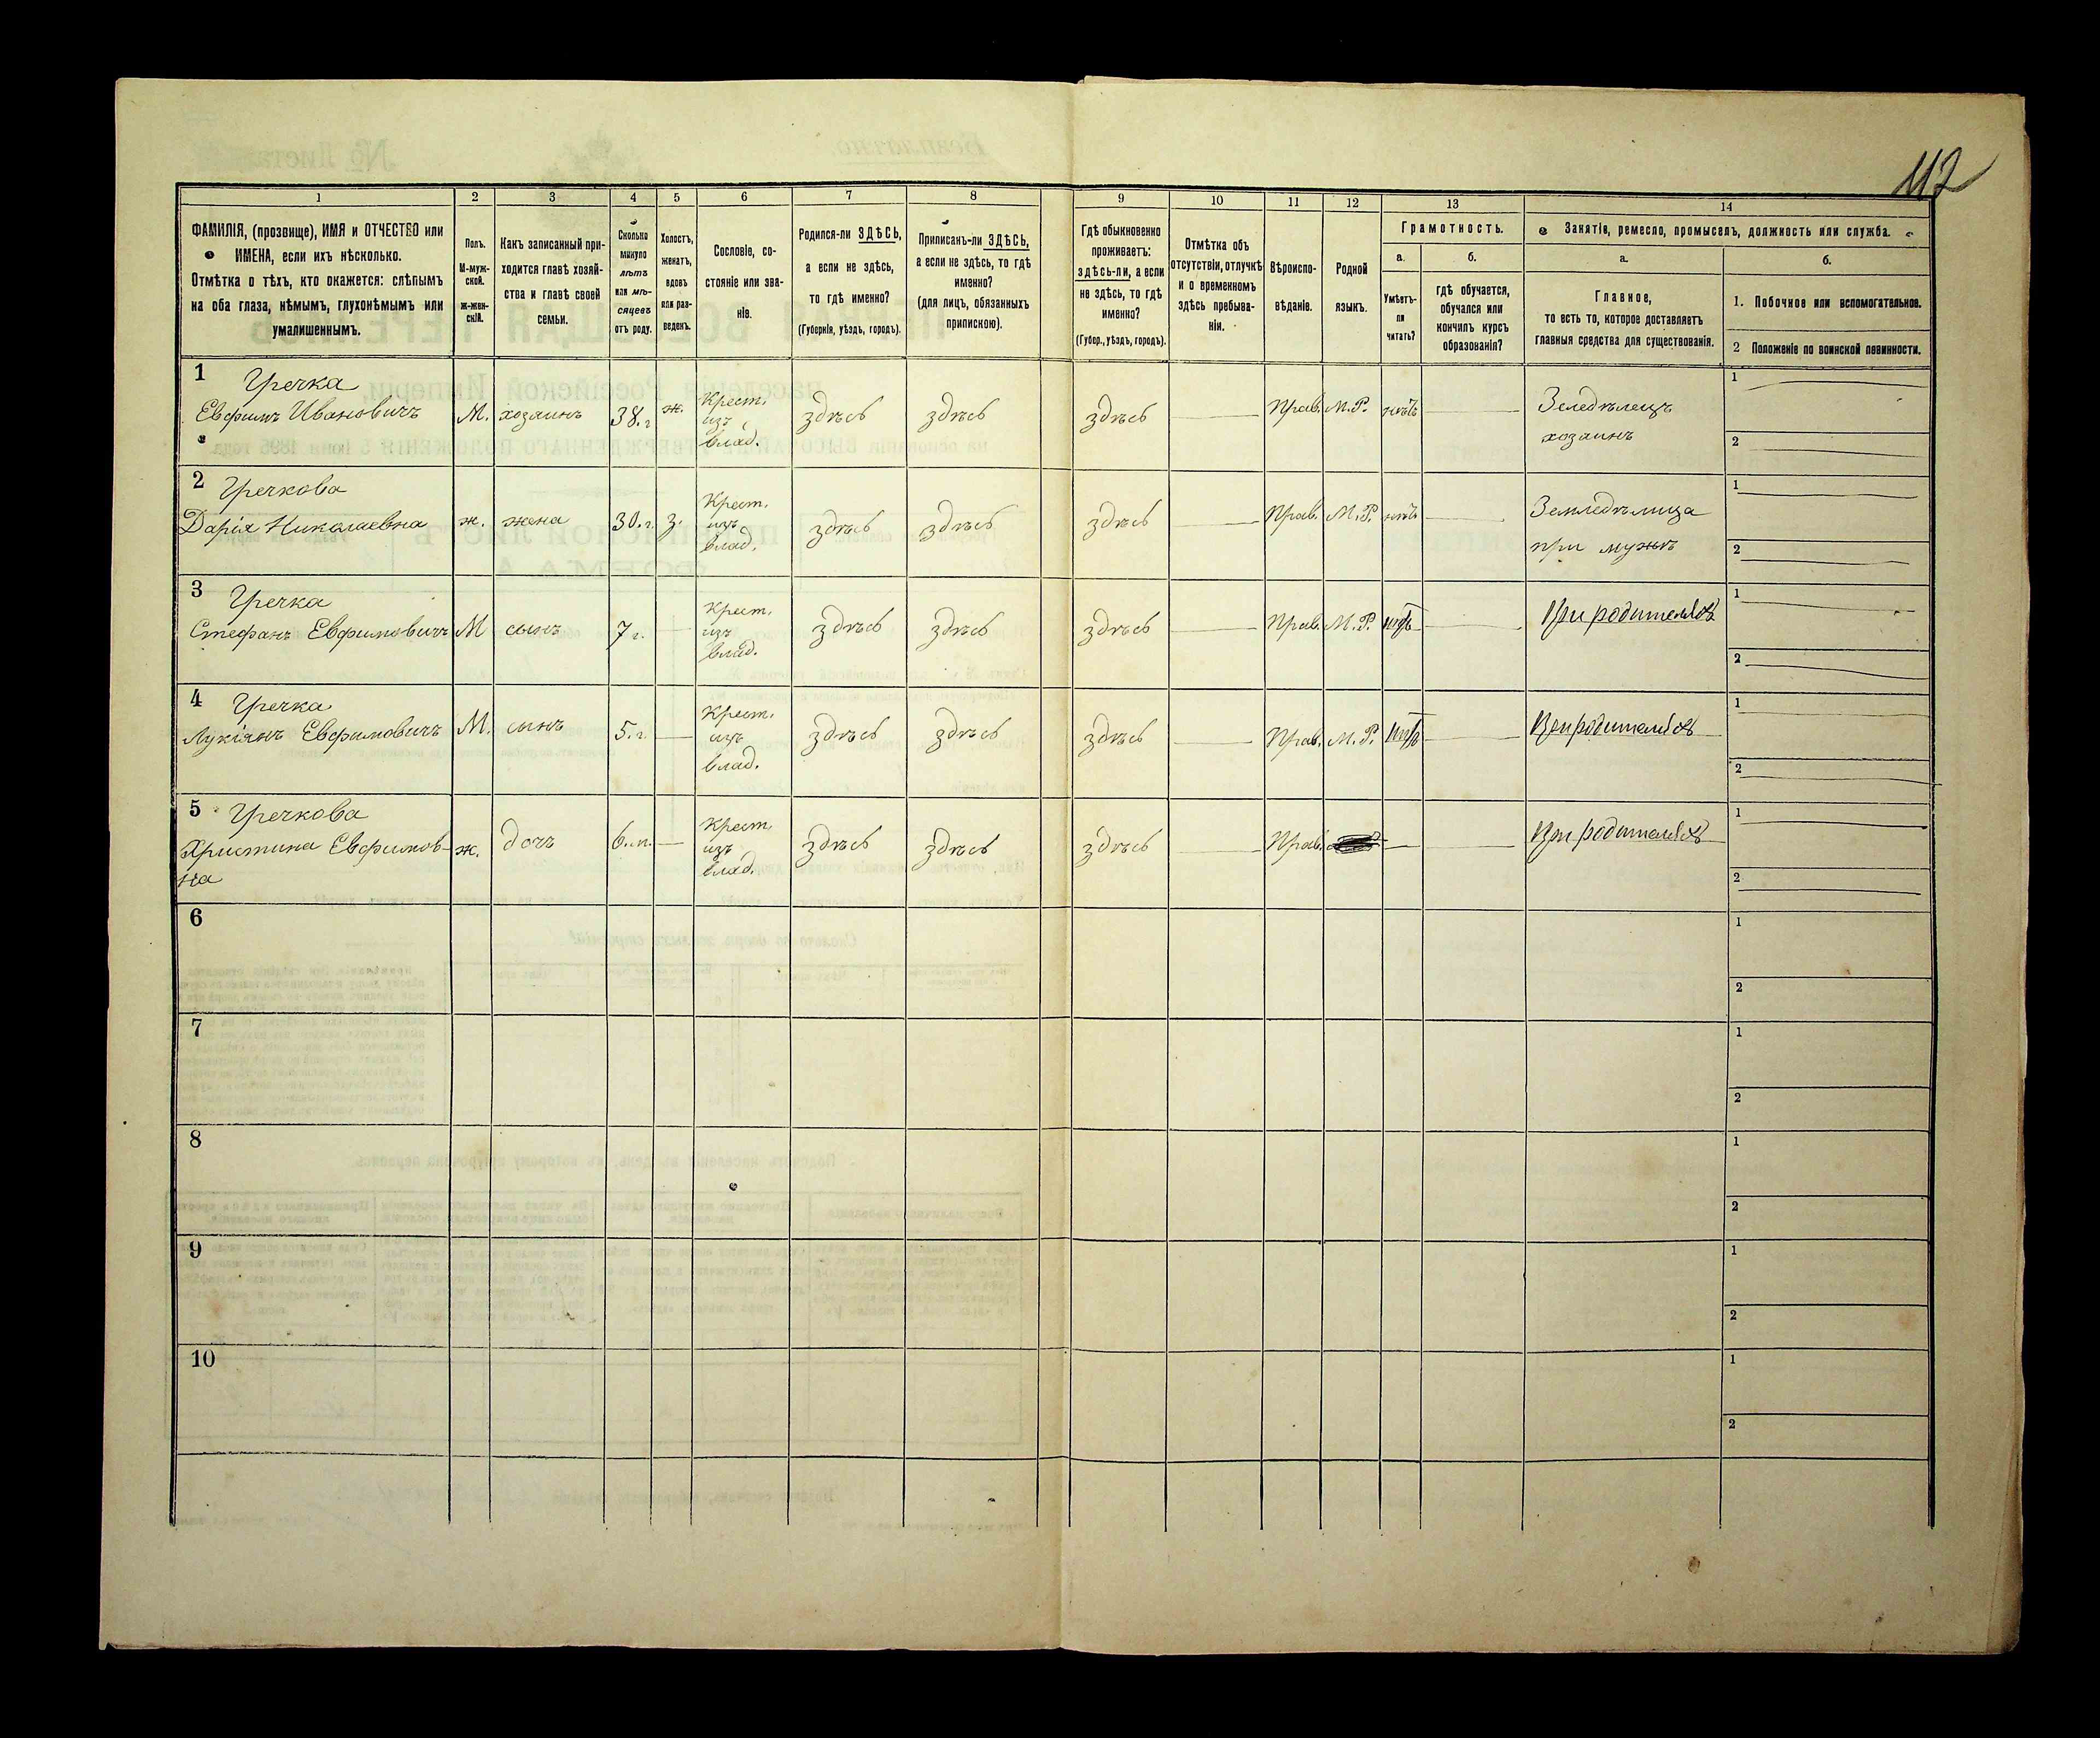 112
1 2 3 4 5 6 7 8 9 10 11 12 13 14
ФАМИЛІЯ, (прозвище), ИМЯ и ОТЧЕСТВО или
ИМЕНА, если ихъ нѣсколько.
Отмѣтка о тѣхъ, кто окажется: слѣпымъ
на оба глаза, нѣмымъ, глухонѣмымъ или
умалишеннымъ.
Полъ.
М-муж-
ской.
ж-жен-
скій.
Какъ записанный при-
ходится главѣ хозяй-
ства и главѣ своей
семьи.
Сколько
минуло
лѣтъ
или мѣ-
сяцевъ
отъ роду.
Холостъ,
женатъ,
вдовъ
или раз-
веденъ.
Сословіе, со-
стояніе или зва-
ніе.
Родился-ли ЗДѢСЬ,
а если не здѣсь,
то гдѣ именно?
(Губернія, уѣздъ, городъ).
Приписанъ-ли ЗДѢСЬ,
а если не здѣсь, то гдѣ
именно?
(для лицъ, обязанныхъ
припискою).
Гдѣ обыкновенно
проживаетъ:
здѣсь-ли, а если
не здѣсь, то гдѣ
именно?
(Губер., уѣздъ, городъ).
Отмѣтка объ
отсутствіи, отлучкѣ
и о временномъ
здѣсь пребыва-
ніи.
Вѣроиспо-
вѣданіе.
Родной
языкъ.
Грамотность.
а.
Умѣетъ-
ли
читать?
б.
гдѣ обучается,
обучался или
кончилъ курсъ
образованія?
Занятіе, ремесло, промыселъ, должность или служба.
а.
Главное,
то есть то, которое доставляетъ
главныя средства для существованія.
б.
1. Побочное или вспомогательное.
2 Положеніе по воинской повинности.
1 Гречка
Евфимъ Ивановичъ М. хозяинъ 38.г ж. Крест. изъ влад. здѣсь здѣсь здѣсь Прав. М.Р. нѣтъ Зеледѣлецъ
хозяинъ
1
2
2 Гречкова
Дарія Николаевна ж. жена 30.г. з. Крест. изъ влад. здѣсь здѣсь здѣсь Прав. М.Р. нѣтъ Земледѣлица
при мужѣ
1
2
3 Гречка
Стефанъ Евфимовичъ М сынъ 7 г. Крест. изъ влад. здѣсь здѣсь здѣсь Прав. М.Р. нѣтъ При родителяхъ
1
2
4 Гречка
Лукіянъ Евфимовичъ М. сынъ 5.г. Крест. изъ влад. здѣсь здѣсь здѣсь Прав. М.Р. нѣтъ При родителяхъ
1
2
5 Гречкова
Христина Евфимов-
на ж. дочь 6.м. Крест изъ влад. здѣсь здѣсь здѣсь Прав. При родителяхъ
1
2
6
1
2
7
1
2
8
1
2
9
1
2
10
1
2